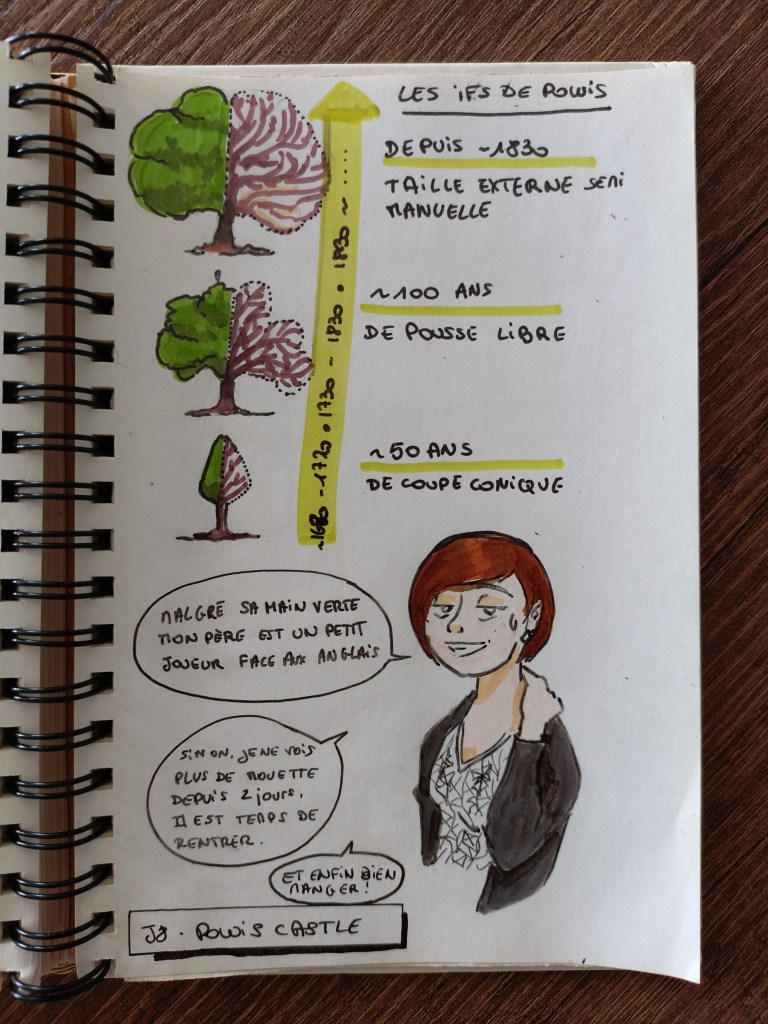 LES IFS DE POWIS
DEPUIS ~1830
TAILLE EXTERNE SEMI
MANUELLE
~100 ANS
DE POUSSE LIBRE
~50 ANS
DE COUPE CONIQUE
~1680 - 1720 • 1730 - 1830 • 1830 ~ .....
MALGRÉ SA MAIN VERTE
MON PÈRE EST UN PETIT
JOUEUR FACE AUX ANGLAIS
SINON, JE NE VOIS
PLUS DE MOUETTE
DEPUIS 2 jours,
IL EST TEMPS DE
RENTRER.
ET ENFIN BIEN
MANGER !
J8 • POWIS CASTLE